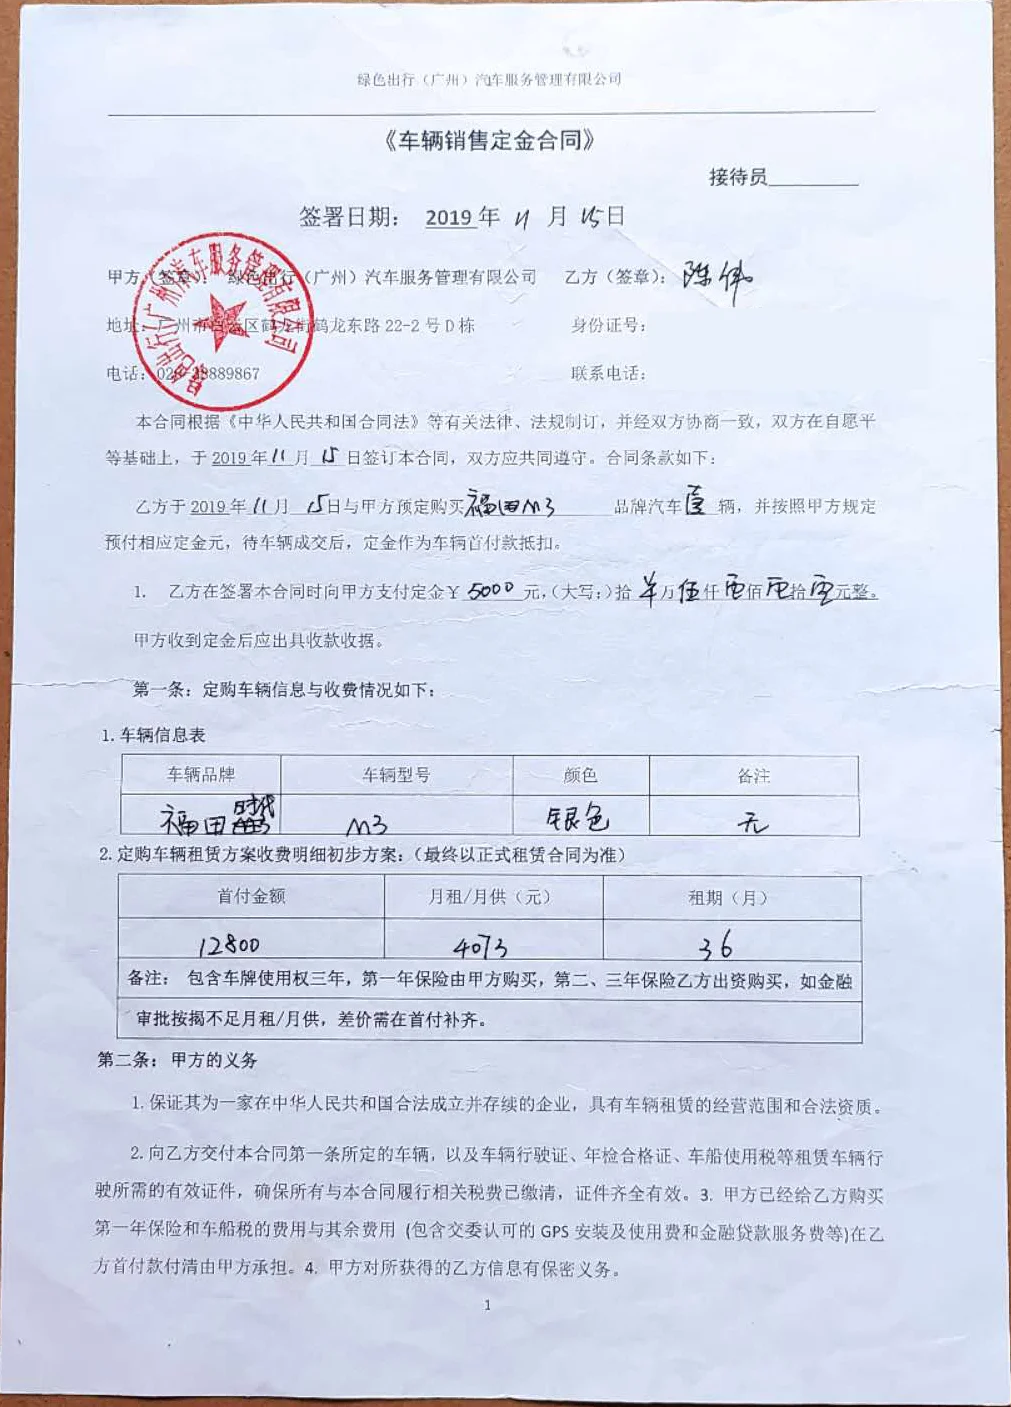 绿色出行（广州）汽车服务管理有限公司
《车辆销售定金合同》
接待员
签署日期： 2019 年 11 月 15日
甲方（签章）： 绿色出行（广州）汽车服务管理有限公司 乙方（签章）：陈伟
地址：广州市白云区鹤龙街鹤龙东路 22-2 号 D 栋 身份证号：
电话：020-28889867 联系电话：
本合同根据《中华人民共和国合同法》等有关法律、法规制订，并经双方协商一致，双方在自愿平
等基础上，于 2019 年 11 月 15 日签订本合同，双方应共同遵守。合同条款如下：
乙方于 2019 年 11 月 15日与甲方预定购买福田M3 品牌汽车壹 辆，并按照甲方规定
预付相应定金元，待车辆成交后，定金作为车辆首付款抵扣。
1. 乙方在签署本合同时向甲方支付定金￥ 5000 元，（大写：）拾 半万伍仟零佰零拾零元整。
甲方收到定金后应出具收款收据。
第一条：定购车辆信息与收费情况如下：
1.车辆信息表
车辆品牌 车辆型号 颜色 备注
福田时代 M3 银色 无
2.定购车辆租赁方案收费明细初步方案：（最终以正式租赁合同为准）
首付金额 月租/月供（元） 租期（月）
12800 4073 36
备注： 包含车牌使用权三年，第一年保险由甲方购买，第二、三年保险乙方出资购买，如金融
审批按揭不足月租/月供，差价需在首付补齐。
第二条：甲方的义务
1.保证其为一家在中华人民共和国合法成立并存续的企业，具有车辆租赁的经营范围和合法资质。
2.向乙方交付本合同第一条所定的车辆，以及车辆行驶证、年检合格证、车船使用税等租赁车辆行
驶所需的有效证件，确保所有与本合同履行相关税费已缴清，证件齐全有效。3. 甲方已经给乙方购买
第一年保险和车船税的费用与其余费用 (包含交委认可的 GPS 安装及使用费和金融贷款服务费等)在乙
方首付款付清由甲方承担。4. 甲方对所获得的乙方信息有保密义务。
1
绿色出行(广州)汽车服务管理有限公司